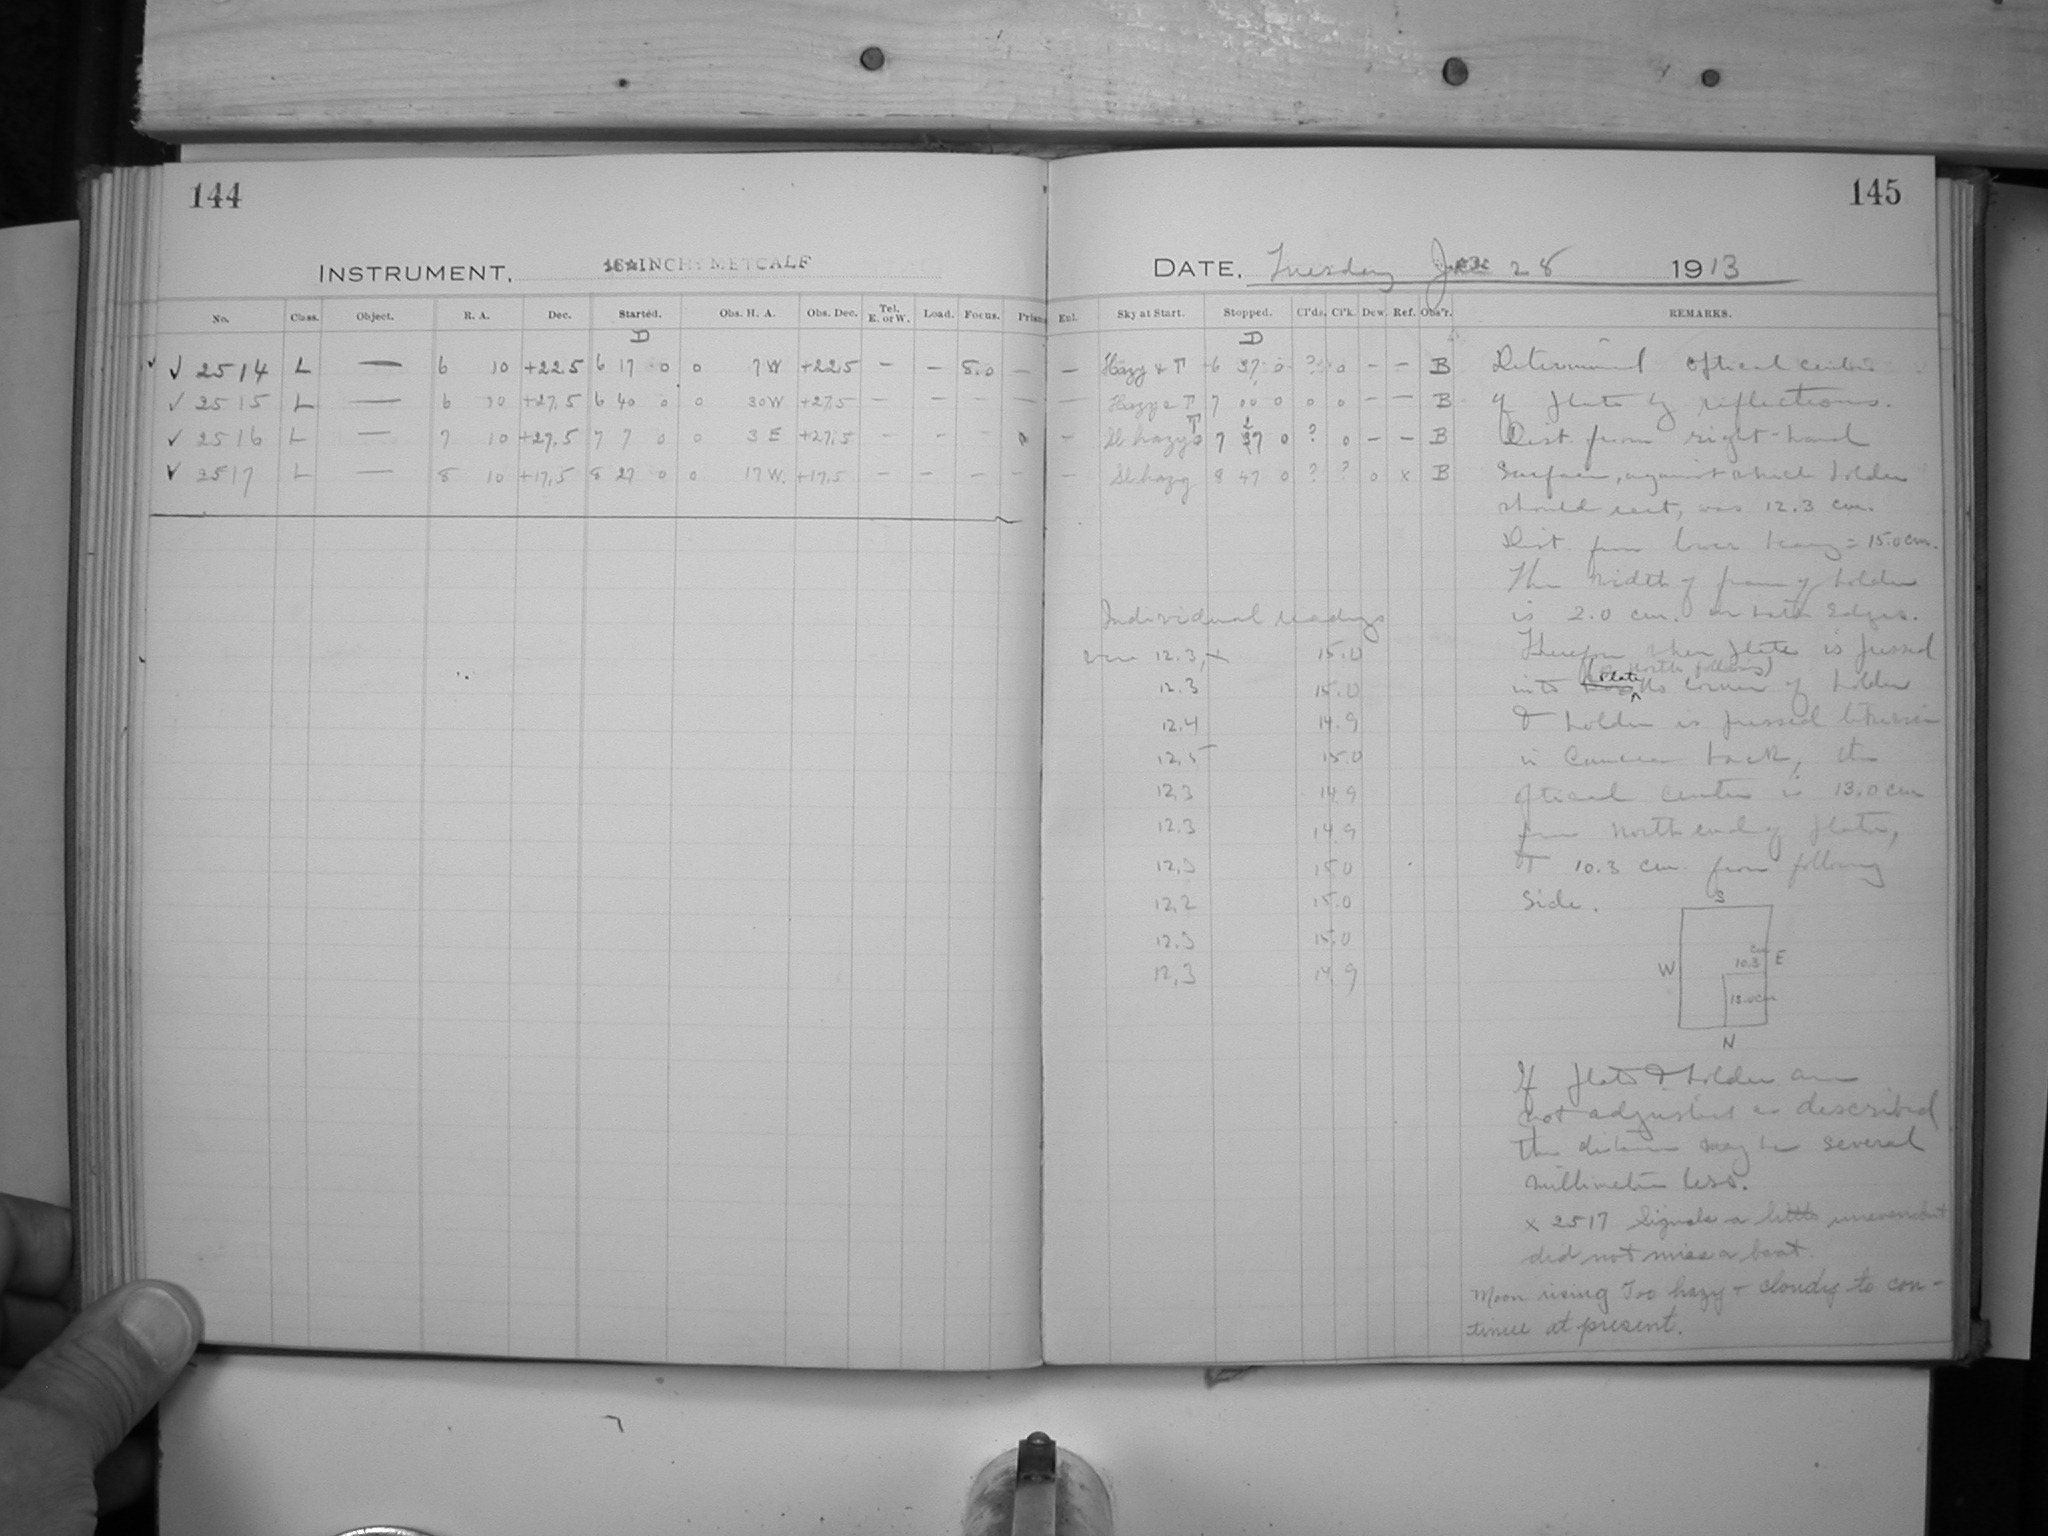 144
INSTRUMENT, 16 INCH METCALF
No. Class. Object. R. A. Dec. Started. Obs. H. A. Obs. Dec. Tel. E. or W. Load. Focus. Prism
D
✓ ✓ 2514 L — 6 10 +22.5 6 17 0 0 7 W +22.5 — — 8.0 —
✓ 2515 L — 6 10 +27.5 6 40 0 0 30 W +27.5 — — — —
✓ 2516 L — 7 10 +27.5 7 7 0 0 3 E +27.5 — - -
✓ 2517 L — 8 10 +17.5 8 27 0 0 17 W. +17.5 — — — —
145
DATE, Tuesday 28 1913
Enl. Sky at Start. Stopped. Cl'ds. Cl'k. Dew. Ref. Obs'r. REMARKS.
D
— Hazy & T 6 37 0 ? 0 — — B
— Hazy & T 7 00 0 0 0 — — B
— Sl hazy T 7 27 0 ? 0 — — B
— Sl hazy 8 47 0 ? ? 0 x B
Determined optical center
of plate by reflections.
Dist. from right-hand
surface, against which holder
should rest, was 12.3 cm.
Dist. from lower = 15.0 cm.
The width of frame of holder
is 2.0 cm. on both edges.
Therefore when plate is pressed
(north following)
into the corner of holder
& holder is pressed
in camera back, the
optical center is 13.0 cm
from north end of plate,
& 10.3 cm. from following
side.
Individual readings
were 12.3, 15.0
12.3 15.0
12.4 14.9
12.5 15.0
12.3 14.9
12.3 14.9
12.3 15.0
12.2 15.0
12.3 15.0
12.3 14.9
S
W E
cm
10.3
13.0cm
N
If plate & holder are
not adjusted as described
the distance may be several
millimeters less.
x 2517 Signals a little uneven but
did not miss a beat.
Moon rising Too hazy + cloudy to con-
tinue at present.